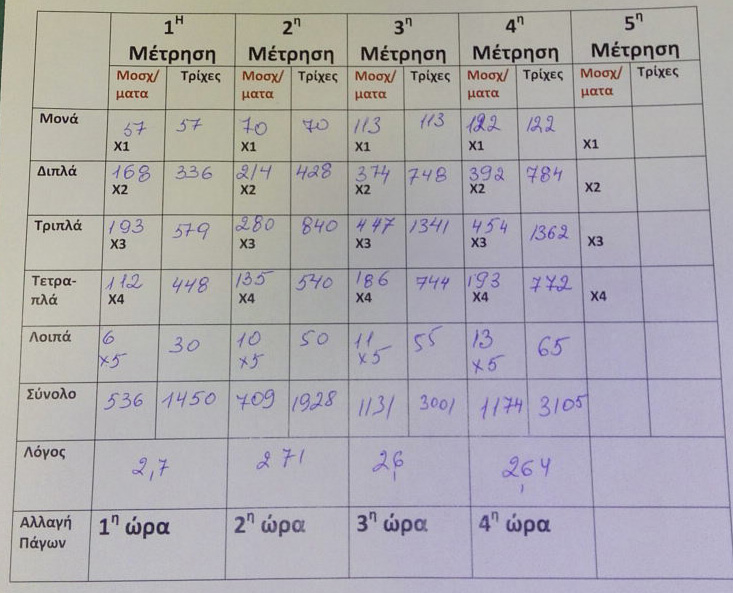 1Η 2η 3η 4η 5η
Μέτρηση Μέτρηση Μέτρηση Μέτρηση Μέτρηση
Μοσχ/ματα Τρίχες Μοσχ/ματα Τρίχες Μοσχ/ματα Τρίχες Μοσχ/ματα Τρίχες Μοσχ/ματα Τρίχες
Μονά 57 57 70 70 113 113 122 122
X1 X1 X1 X1 X1
Διπλά 168 336 214 428 374 748 392 784
X2 X2 X2 X2 X2
Τριπλά 193 579 280 840 447 1341 454 1362
X3 X3 X3 X3 X3
Τετρα-πλά 112 448 135 540 186 744 193 772
X4 X4 X4 X4 X4
Λοιπά 6 30 10 50 11 55 13 65
x5 x5 x5 x5
Σύνολο 536 1450 709 1928 1131 3001 1174 3105
Λόγος 2,7 271 2,6 2,64
Αλλαγή Πάγων 1η ώρα 2η ώρα 3η ώρα 4η ώρα